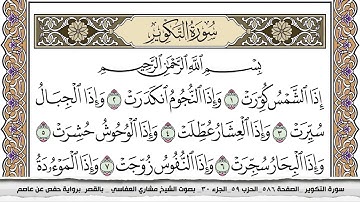 سُورَةُ التَّكْوِيرِ
بِسْمِ اللَّهِ الرَّحْمَٰنِ الرَّحِيمِ
إِذَا الشَّمْسُ كُوِّرَتْ ١ وَإِذَا النُّجُومُ انكَدَرَتْ ٢ وَإِذَا الْجِبَالُ
سُيِّرَتْ ٣ وَإِذَا الْعِشَارُ عُطِّلَتْ ٤ وَإِذَا الْوُحُوشُ حُشِرَتْ ٥
وَإِذَا الْبِحَارُ سُجِّرَتْ ٦ وَإِذَا النُّفُوسُ زُوِّجَتْ ٧ وَإِذَا الْمَوْءُودَةُ
سورة التكوير الصفحة ٥٨٦ الحزب ٥٩ الجزء ٣٠ بصوت الشيخ مشاري العفاسي بالقصر برواية حفص عن عاصم